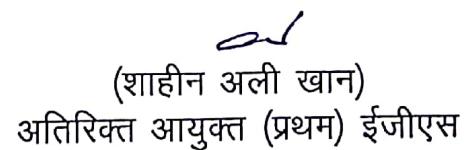 (शाहीन अली खान)
अतिरिक्त आयुक्त (प्रथम) ईजीएस